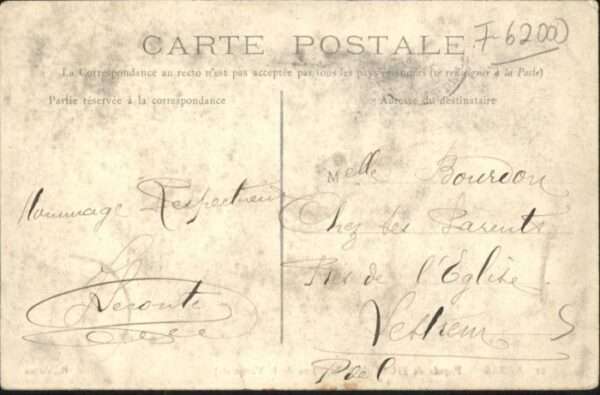 CARTE POSTALE
F-6200
La Correspondance au recto n'est pas acceptée par tous les pays étrangers (se renseigner à la Poste)
Partie réservée à la correspondance
Adresse du destinataire
Hommage Respectueux
Leconte
Melle Bourdon
Chez ses Parents
Près de l'Église
P de C